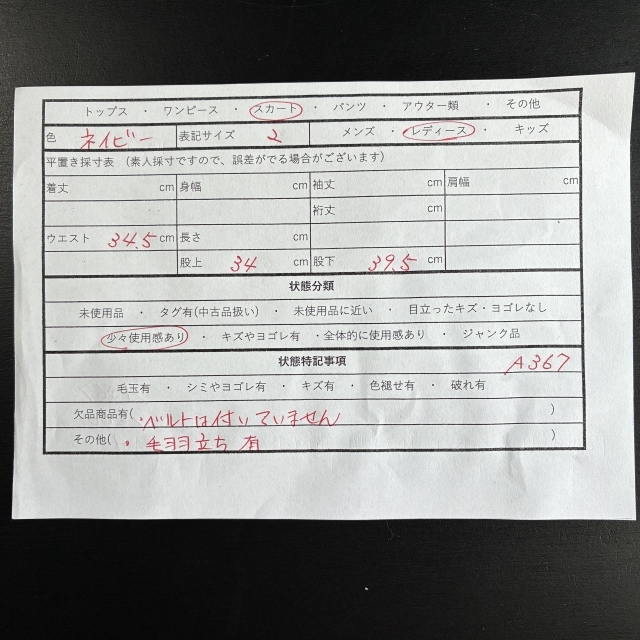 トップス ・ ワンピース ・ スカート ・ パンツ ・ アウター類 ・ その他
色 ネイビー 表記サイズ 2 メンズ ・ レディース ・ キッズ
平置き採寸表 (素人採寸ですので、誤差がでる場合がございます)
着丈 cm 身幅 cm 袖丈 cm 肩幅 cm
裄丈 cm
ウエスト 34.5 cm 長さ cm
股上 34 cm 股下 39.5 cm
状態分類
未使用品 ・ タグ有(中古品扱い) ・ 未使用品に近い ・ 目立ったキズ・ヨゴレなし
少々使用感あり ・ キズやヨゴレ有 ・全体的に使用感あり ・ ジャンク品
状態特記事項 A367
毛玉有 ・ シミやヨゴレ有 ・ キズ有 ・ 色褪せ有 ・ 破れ有
欠品商品有( ・ベルトは付いていません )
その他( ・毛羽立ち有 )